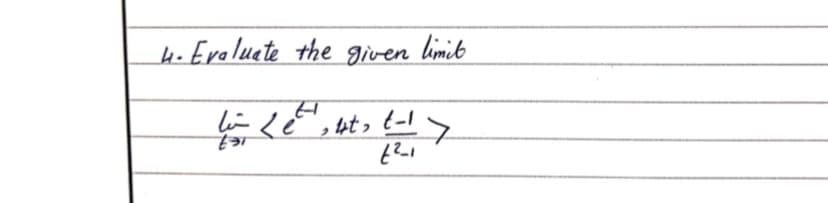 4. Evaluate the given limit
lim t→1 < e^(t-1), 4t, (t-1)/(t²-1) >